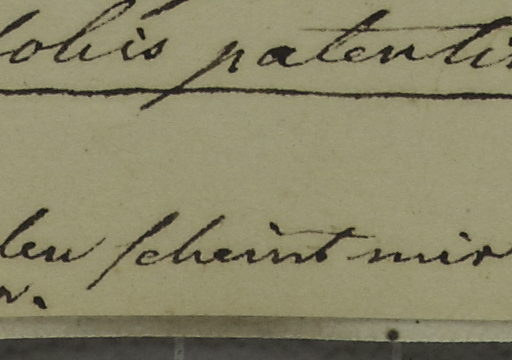 lobis patenti
len scheint mir
r.